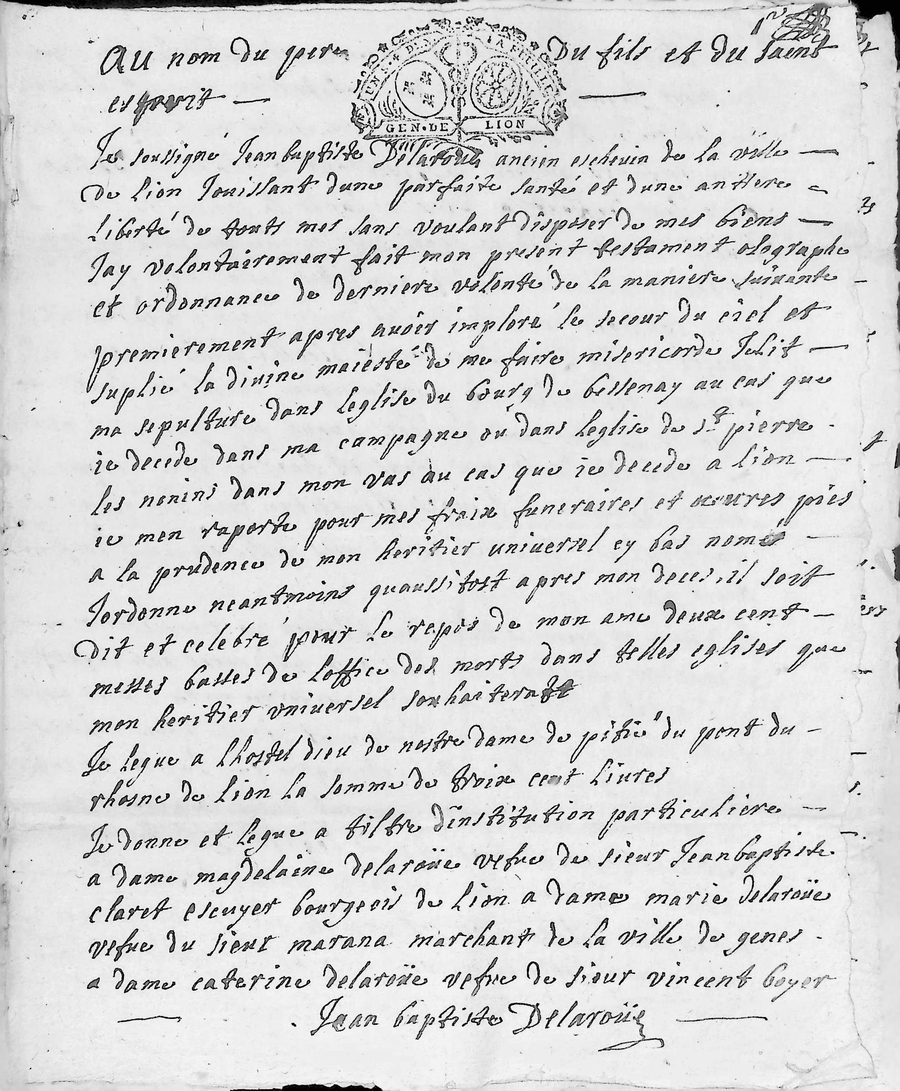 Au nom du pere Du fils et du saint
esprit —
GEN · DE LION
Je soussigné Jean baptiste Delaroüe ancien eschevin de la ville —
De Lion Jouissant dune parfaite santé et dune antiere
Liberté de touts mes sans voulant disposer de mes biens —
Jay volontairement fait mon present testament olographe
et ordonnance de derniere volonté de la maniere suivante
premierement apres avoir imploré le secour du ciel et
suplié la divine maiesté de me faire misericorde Jelit —
ma sepulture dans leglise du bourg de bessenay au cas que
ie decede dans ma campagne ou dans leglise de st pierre
les nonins dans mon vas au cas que ie decede a lion —
ie men raporte pour mes fraix funeraires et œuvres pies
a la prudence de mon heritier universel cy bas nomé —
Jordonne neantmoins quaussitost apres mon deces, il soit
Dit et celebré pour le repos de mon ame deux cent —
messes basses de loffice des morts dans telles eglises que
mon heritier universel souhaitera
Je legue a lhostel dieu de nostre dame de pitié du pont du —
rhosne de Lion la somme de troix cent livres
Je donne et legue a tiltre dinstitution particuliere —
a dame magdelaine delaroüe vefve de sieur Jeanbaptiste
claret escuyer bourgeois de Lion a dame marie delaroüe
vefve du sieur marana marchant de la ville de genes
a dame caterine delaroüe vefve de sieur vincent boyer
— Jean baptiste Delaroüe —